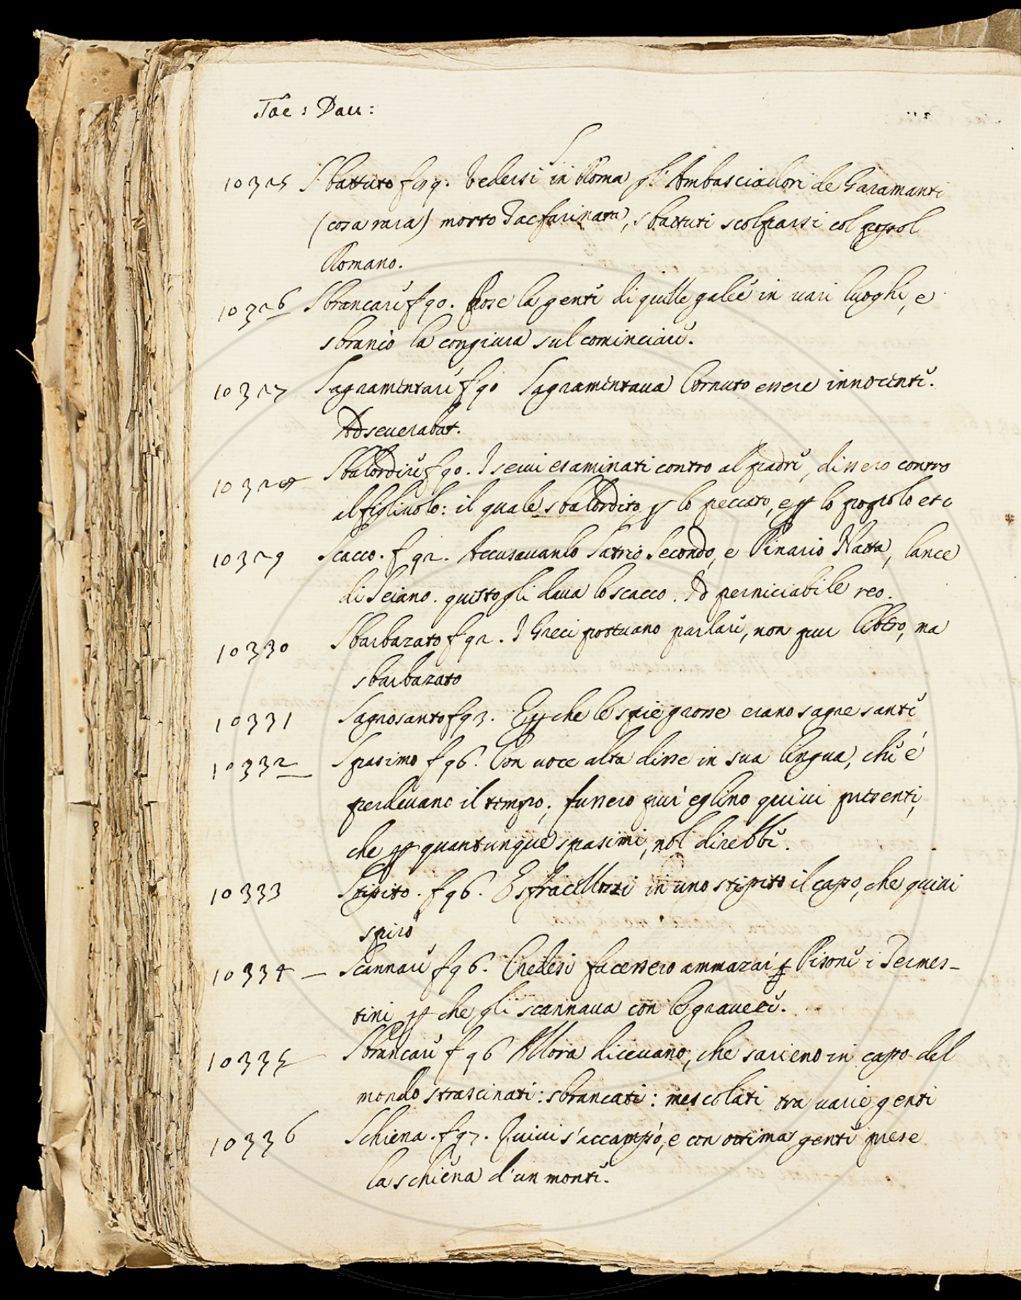 Tac: Dau:
S
10325 Sbattuto f 89. Vedersi in Roma gl'Ambasciadori de Garamanti
(cosa rara) morto Tacfarinata, sbattuti scolparsi col popol
Romano.
10326 Sbrancare f 90. Pose la gente di quelle galee in vari luoghi, e
sbrancò la congiura sul cominciare.
10327 Sagramentare f 90 Sagramentava Cornuto essere innocente.
Adseverabat.
10328 Sbalordire f 90. I servi esaminati contro al padre, dissero contro
al figliuolo: il quale sbalordito, p lo peccato, e p lo popolo etc
10329 Scacco. f 92. Accusavanlo Satrio Secondo, e Pinario Natta, lance
di Seiano. questo gli dava lo scacco. Id perniciabile reo.
10330 Sbarbazato f 92. I Greci potevano parlare, non pur libero, ma
sbarbazato
10331 Sagrosanto f 93. E p che le spie grosse erano sagre sante
10332 Spasimo f 96. Con voce alta disse in sua lingua, che e'
perdevano il tempo; fussero pur eglino quivi presenti,
che p quantunque spasimi, nol direbbe.
10333 Stipito. f 96. E sfracellossi in uno stipito il capo, che quivi
spirò
10334 Scannare f 96. Credesi facessero ammazar Pisone i Termes-
tini p che gli scannava con le gravezze.
10335 Sbrancare f 96 Allora dicevano, che sarieno in capo del
mondo strascinati: sbrancati: mescolati tra varie genti
10336 Schiena. f 97. Quivi s'accampò, e con ottima gente prese
la schiena d'un monte.